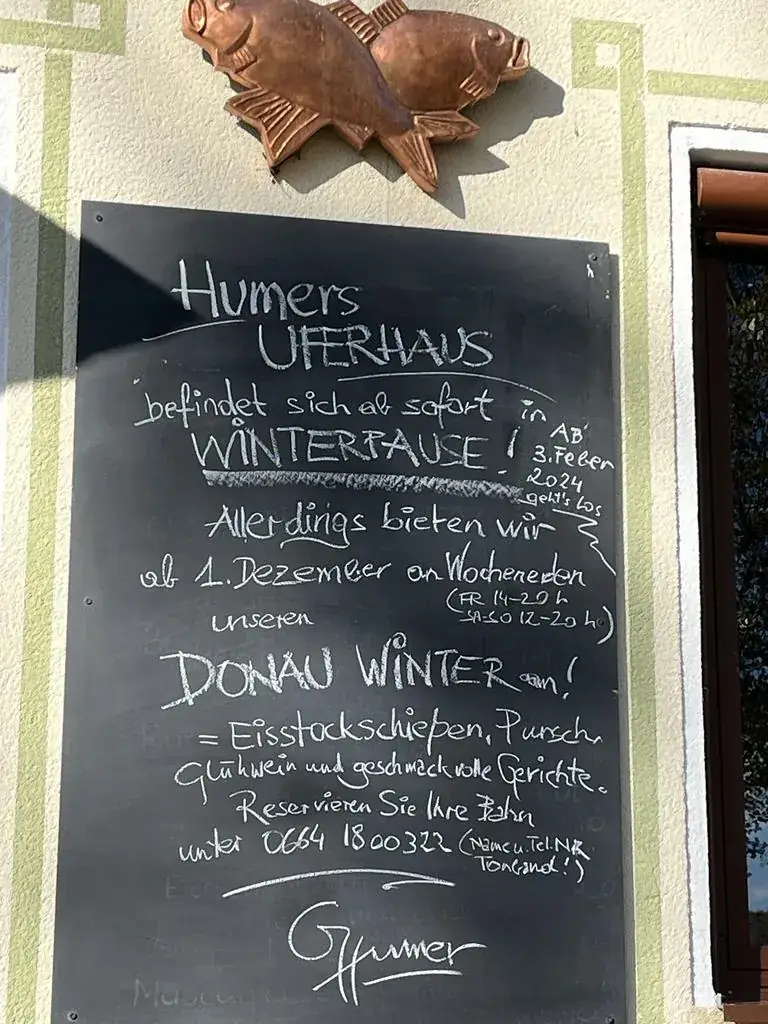 Humers
UFERHAUS
befindet sich ab sofort in
WINTERPAUSE!
AB
3. Feber
2024
geht's los
Allerdings bieten wir
ab 1. Dezember an Wochenenden
(FR 14-20 h
SA-SO 12-20 h)
unseren
DONAU WINTER an!
= Eisstockschießen, Punsch,
Glühwein und geschmackvolle Gerichte.
Reservieren Sie Ihre Bahn
unter 0664 1800322 (Name u. Tel.NR
Tonband!)
GHumer